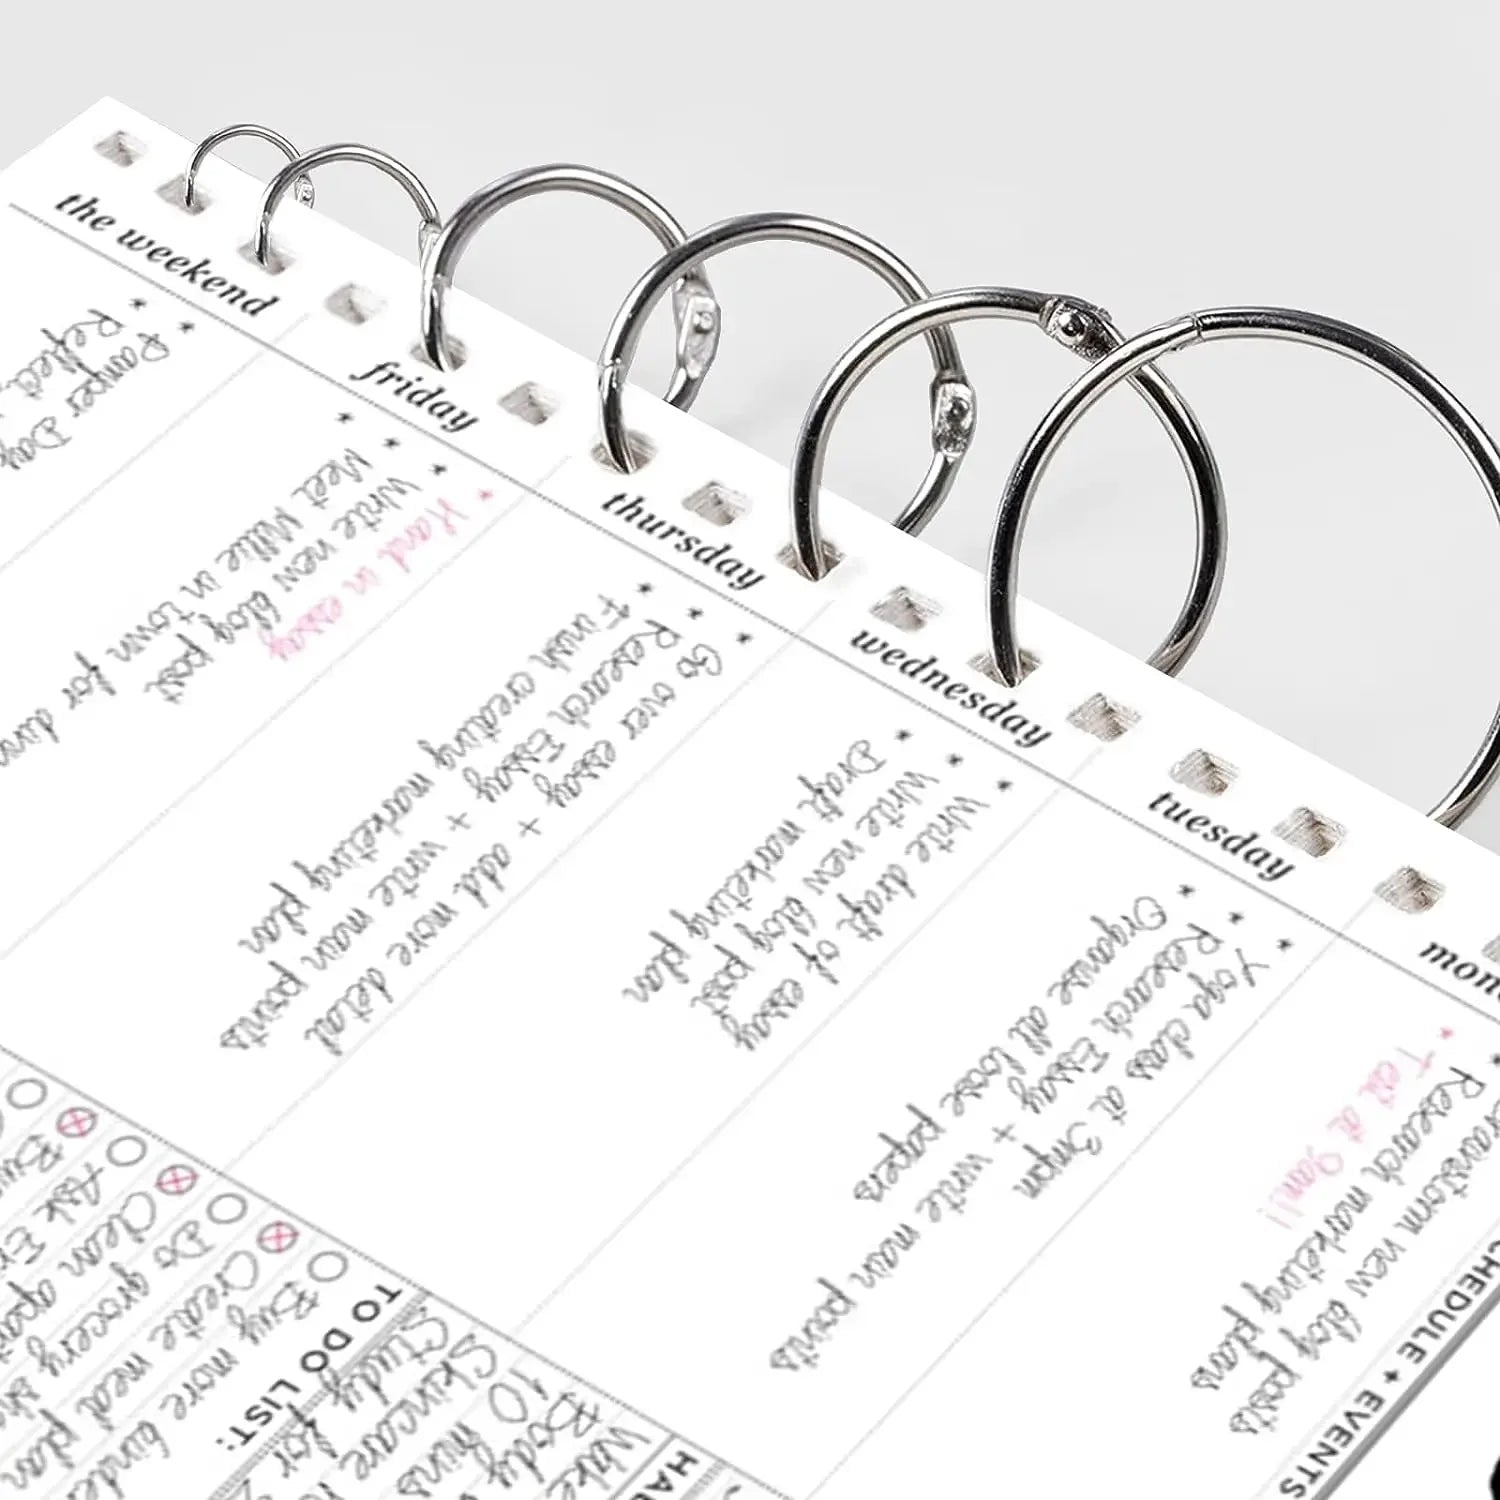 mon
Test at 9am!!
Research marketing plans
new blog posts
tuesday
Yoga class at 3mpm
Research Essay + write main points
Organise all loose papers
wednesday
Write draft of essay
Write new blog post
Draft marketing plan
thursday
Go over essay + add more detail
Research Essay + write main points
Finish creating marketing plan
friday
Hand in essay
Write new blog post
Meet Millie in town for
the weekend
Pamper Day
SCHEDULE + EVENTS
TO DO LIST:
Buy more
Create meal plan
Do grocery
Clean
Ask
Study for
Skincare
10 mins
Body